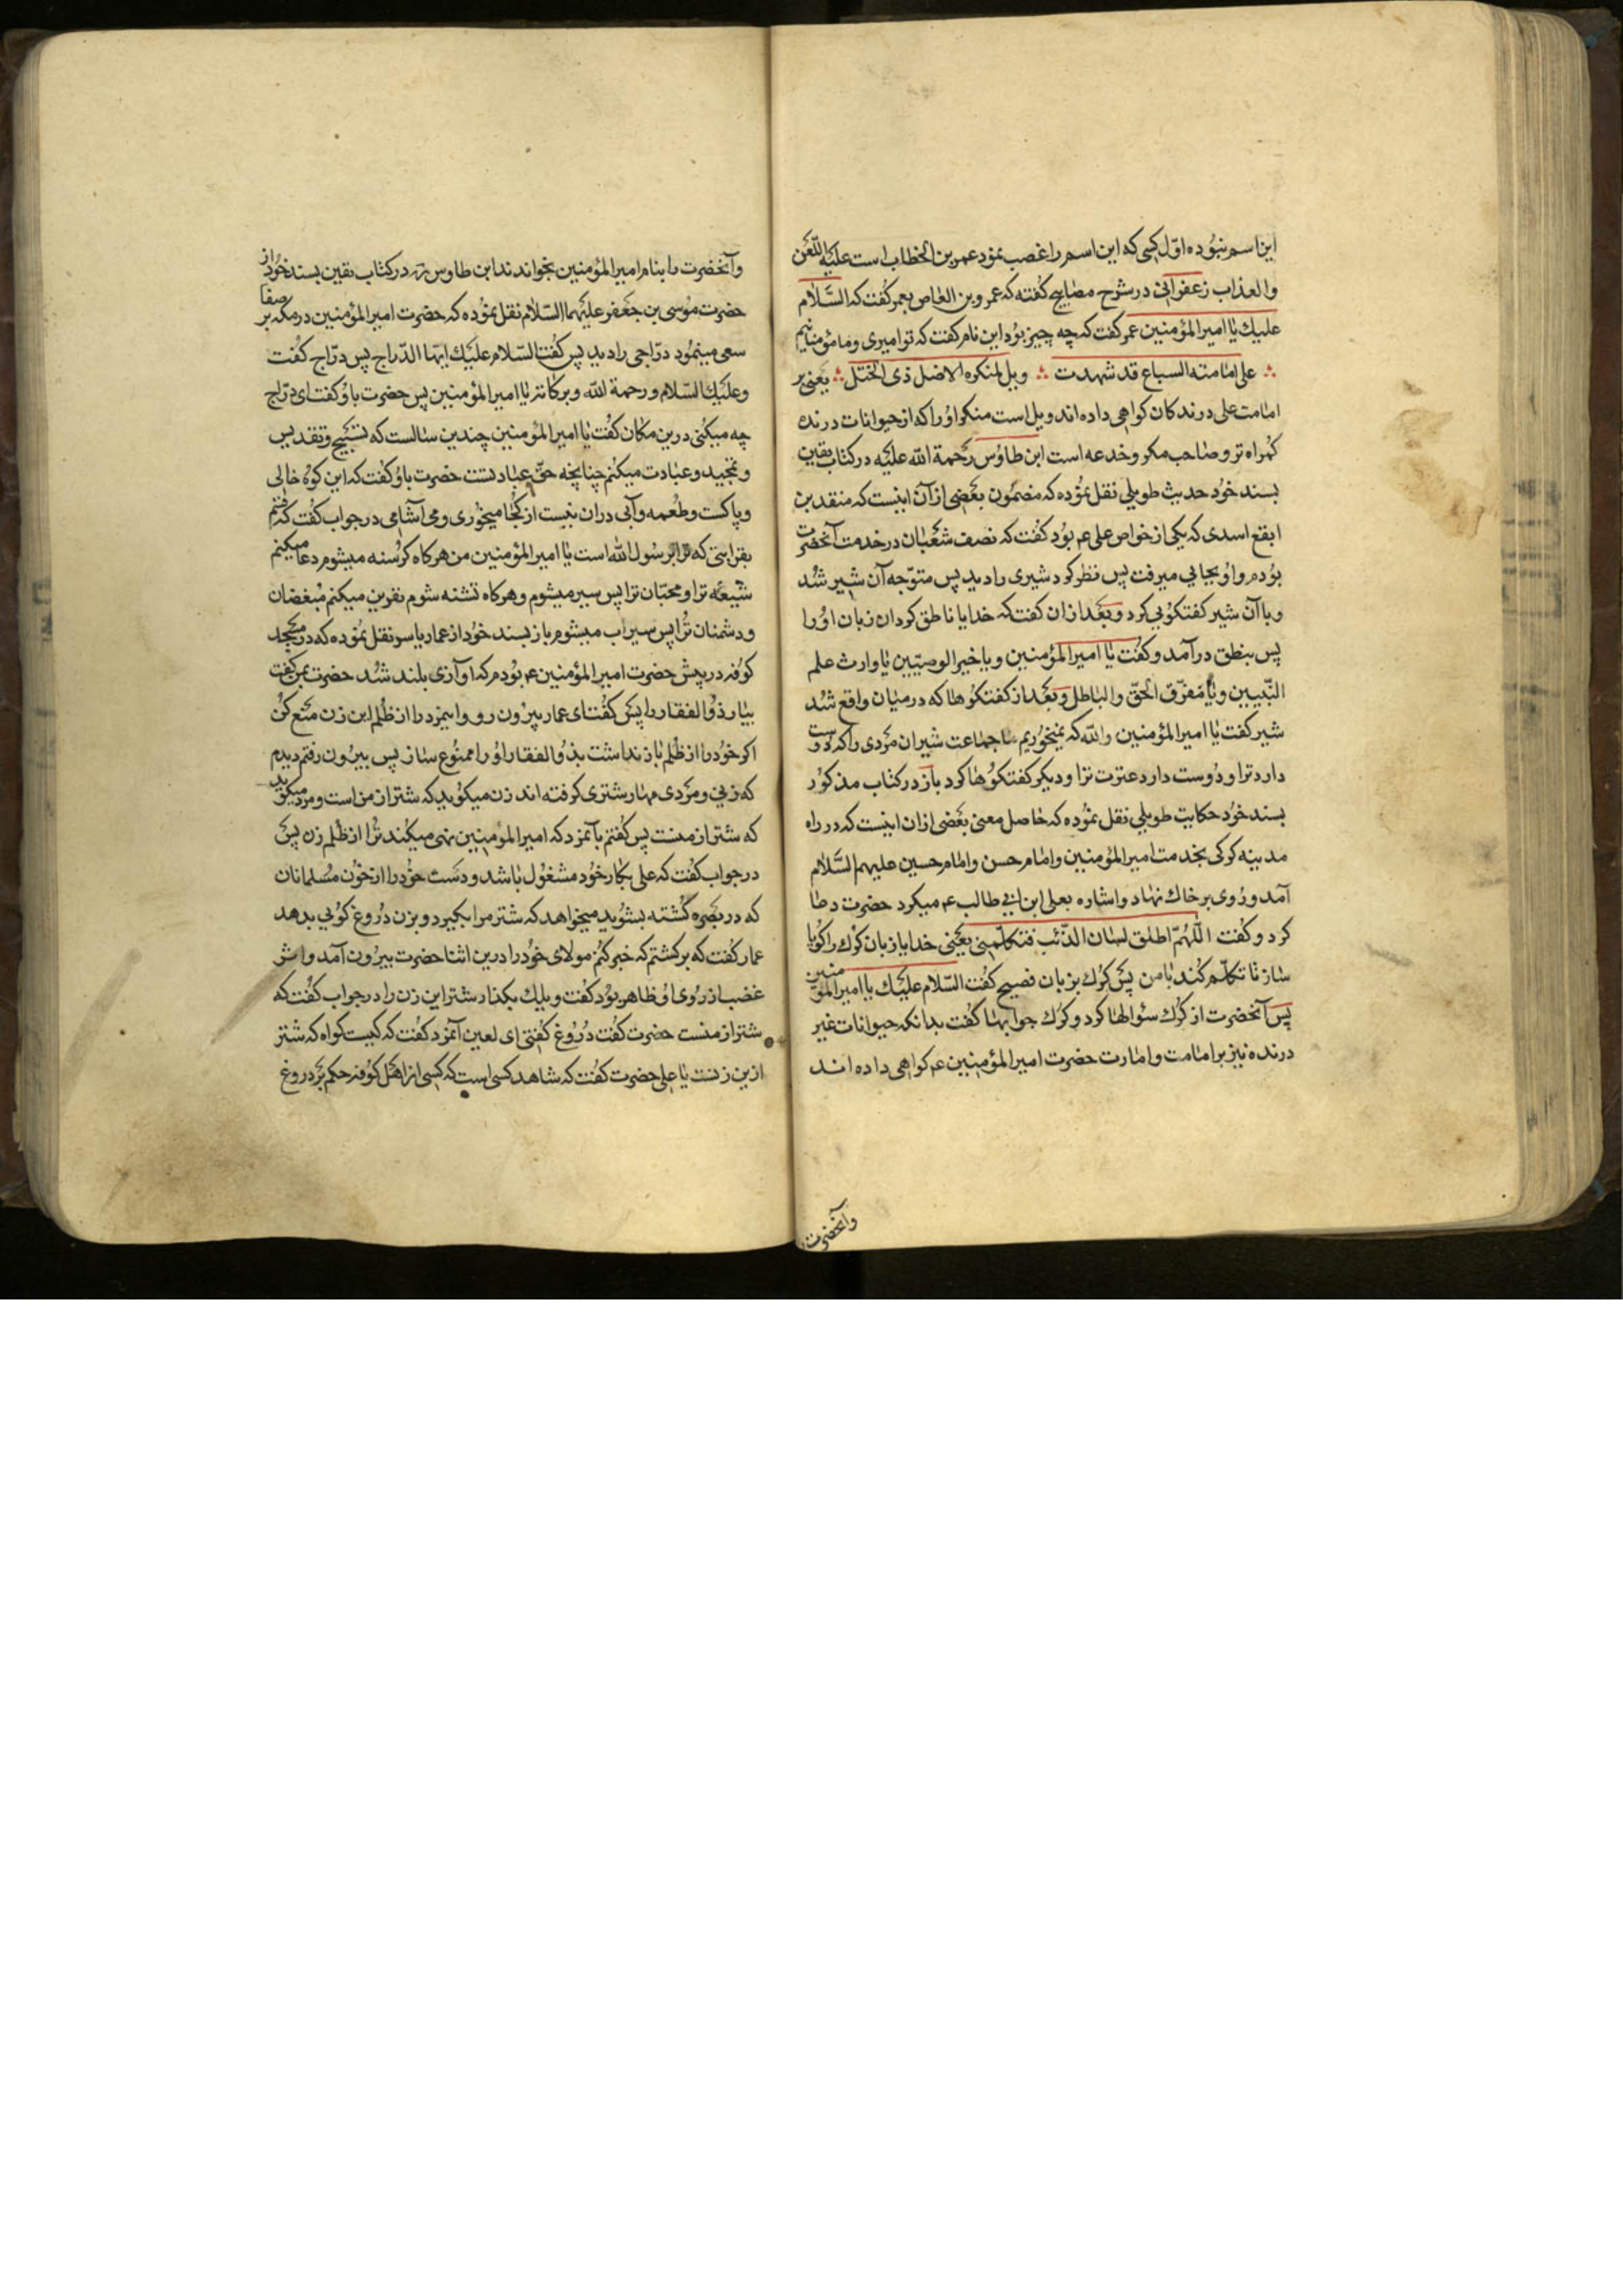 این اسم نبوده اوّل کسی که این اسم را غصب نمود عمر بن الخطاب است علیه اللّعن
والعذاب زعفرانی در شرح مصابیح کفته که عمرو بن العاص بعمر کفت که السَّلام
علیك یا امیر المؤمنین عمر کفت که چه چیز بود این نام کفت که تو امیری و ما مؤمنانیم
علی امامته السباع قد شهدت ویل لمنکره الاضل ذی الختل یعنی بر
امامت علی درندکان کواهی داده اند ویل است منکر اوُ را که از حیوانات درنده
کمراه تر و صاحب مکر و خدعه است ابن طاوُس رحمة الله علیَه در کتاب یقین
بسند خوُد حدیث طویلی نقل نموُده که مضموُن بعَضی از آن اینست که منقد بن
ابقع اسدی که یکی از خواص علی عم بوُد کفت که نصف شعَبان در خدمت آنحضرت
بوُدم و اوُ بجایی میرفت پس نظر کرد شیری را دید پس متوّجه آن شیر شُد
و با آن شیر کفتکوُیی کرد و بعَد از ان کفت که خدایا ناطق کردان زبان اوُ را
پس بنطق در آمد و کفُت یا امیر المؤمنین و یا خیر الوصیّین یا وارث علم
النّبیین و یا مُفرّق الحقّ والباطل و بعَد از کفتکوُها که در میان واقع شُد
شیر کفت یا امیر المؤمنین والله که نمیخوُریم ما جماعت شیران مَردی را که دوست
دارد ترا و دوُست دارد عترت ترا و دیکر کفتکوُها کرد باز در کتاب مذکوُر
بسند خوُد حکایت طویلی نقل نموُده که حاصل معنی بعَضی از ان اینست که در راه
مدینه کرکی بخدمت امیر المؤمنین و امام حسن و امام حسین علیهم السَّلام
آمد و روُی بر خاك نهاد و اشاره بعلی ابن ابی طالب عم میکرد حضرت دعا
کرد و کفُت اللّهُمّ اطلق لسان الذّئب فتکلّمنی یعَنی خدایا زبان کرُك را کوُیا
ساز تا تکلّم کُند با من پسَ کرُك بزبان فصیح کفُت السّلام علیَك یا امیر المؤمنین
پسَ آنحضرت از کرُك سؤالها کرد و کرُك جوابها کفُت بدانکه حیوانات غیر
درنده نیز بر امامت و امارت حضرت امیر المؤمنین عم کواهی داده اند
وآنحضرت
وآنحضرت را بنام امیر المؤمنین بخواندند ابن طاوس ره در کتاب یقین بسند خوُد از
حضرت موُسی بن جعَفر علیَهما السّلام نقل نموُده که حضرت امیر المؤمنین در مکّه بر صفا
سعی مینموُد درّاجی را دید پس کفُت السّلام علیَك ایّها الدّراج پس درّاج کفُت
وعلیَك السّلام ورحمة الله وبرکاته یا امیر المؤمنین پس حضرت باوُ کفت ای درّاج
چه میکنی درین مکان کفُت یا امیر المؤمنین چندین سالست که تسَبیح و تقدیس
و تمجید و عبادت میکنم چنانچه حقّ عبادتست حضرت باوُ کفُت که این کوُه خالی
و پاکست و طُعمه و آبی در ان نیست از کجُا میخوُری و می آشامی در جواب کفُت که قسم
بقرابتی که ترا بر رسُول الله است یا امیر المؤمنین من هر کاه کرُسنه میشوم دعا میکنم
شیعَه ترا و محبّان ترا پس سیر میشوم و هر کاه تشنه شوم نفرین میکنم مُبغضان
و دشمنان ترُا پس سیراب میشوم باز بسند خوُد از عمار یاسر نقل نموُده که در مسَجد
کوُفه در پیش حضرت امیر المؤمنین عم بوُدم که آوازی بلند شُد حضرت بمن کفت
بیار ذوُالفقار را پسَ کفُت ای عمار بیرُون رو و اینمرد را از ظلُم این زن منَع کُن
اکر خوُد را از ظلُم باز نداشت بذوُالفقار اوُ را ممنوُع ساز پس بیرُون رفتم دیدم
که زنی و مرَدی مهار شتری کرفته اند زن میکوُید که شتر از من است و مرد میکوید
که شتر از منست پس کفُتم بآنمرد که امیر المؤمنین نهی میکُند ترُا از ظلُم زن پسَ
در جواب کفُت که علی بکار خوُد مشغوُل باشد و دسَت خوُد را از خوُن مسُلمانان
که در بصره کشُته بشوُید میخواهد که شتر مرا بکیرد و بزن درُوغ کوُیی بدهد
عمار کفُت که برکشتم که خبر کنُم مولای خوُد را درین اثنا حضرت بیرُون آمد و اثر
غضب از روُی اوُ ظاهر بوُد کفُت ویلك بکذار شتر این زن را در جواب کفُت که
شتر از منست حضرت کفُت درُوُغ کفُتی ای لعین آنمرد کفُت که کیست کواه که شتر
ازین زنست یا علی حضرت کفُت که شاهد کسی است که کسی از اهَل کوُفه حکم بَر دروغ